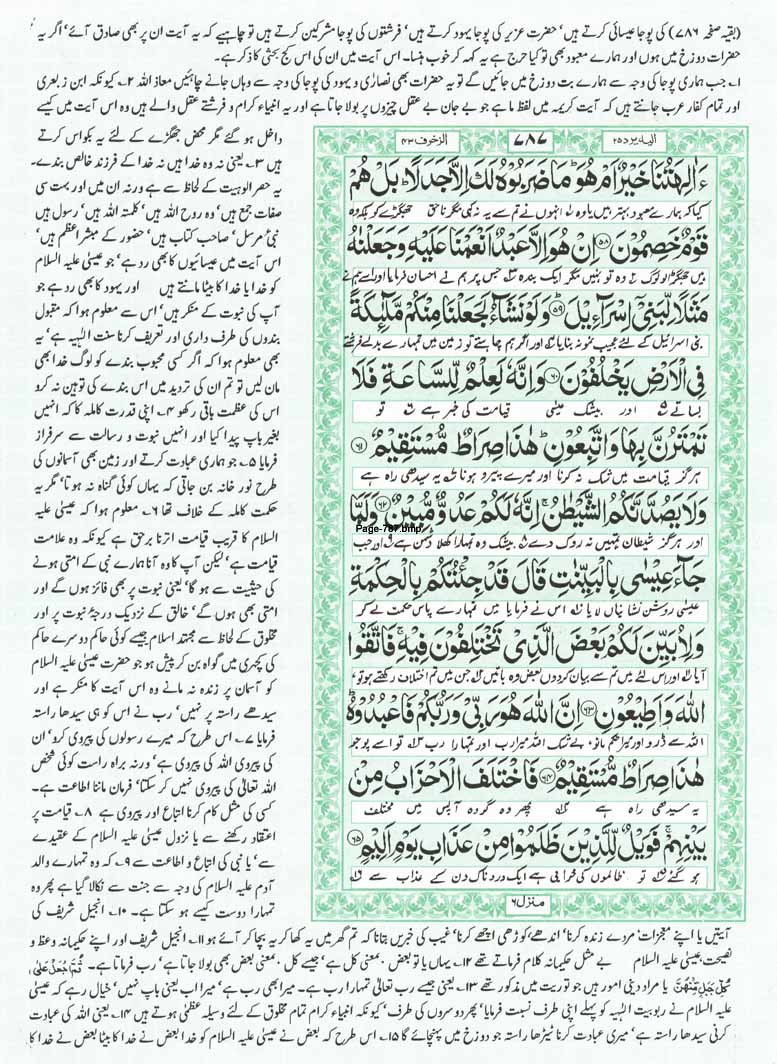 (بقیہ صفحہ ۷۸۶) کی پوجا عیسائی کرتے ہیں' حضرت عزیر کی پوجا یہود کرتے ہیں' فرشتوں کی پوجا مشرکین کرتے ہیں تو چاہیے کہ یہ آیت ان پر بھی صادق آئے' اگر یہ
حضرات دوزخ میں ہوں اور ہمارے معبود بھی تو کیا حرج ہے یہ کہہ کر خوب ہنسا۔ اس آیت میں ان کی اس کج بحثی کا ذکر ہے۔
۱۔ جب ہماری پوجا کی وجہ سے ہمارے بت دوزخ میں جائیں گے تو یہ حضرات بھی نصاریٰ و یہود کی پوجا کی وجہ سے وہاں جانے چاہئیں معاذ اللہ ۲۔ کیونکہ ابن زبعری
اور تمام کفار عرب جانتے ہیں کہ آیت کریمہ میں لفظ ما ہے جو بے جان بے عقل چیزوں پر بولا جاتا ہے اور یہ انبیاء کرام و فرشتے عقل والے ہیں وہ اس میں کیسے
الیہ یرد ۲۵
۷۸۷
الزخرف ۴۳
ءَاٰلِهَتُنَا خَيْرٌ اَمْ هُوَ ؕ مَا ضَرَبُوْهُ لَكَ اِلَّا جَدَلًا ؕ بَلْ هُمْ
کیا کہ ہمارے معبود بہتر ہیں یا وہ انہوں نے تم سے یہ نہ کہی مگر ناحق جھگڑے کو بلکہ وہ
قَوْمٌ خَصِمُوْنَ ۵۸ اِنْ هُوَ اِلَّا عَبْدٌ اَنْعَمْنَا عَلَيْهِ وَجَعَلْنٰهُ
ہیں جھگڑالو لوگ وہ تو نہیں مگر ایک بندہ جس پر ہم نے احسان فرمایا اور اسے ہم نے
مَثَلًا لِّبَنِيْٓ اِسْرَآءِيْلَ ۵۹ وَلَوْ نَشَآءُ لَجَعَلْنَا مِنْكُمْ مَّلٰٓئِكَةً
بنی اسرائیل کے لئے عجیب نمونہ بنایا اور اگر ہم چاہتے تو زمین میں تمہارے بدلے فرشتے
فِى الْاَرْضِ يَخْلُفُوْنَ ۶۰ وَاِنَّهٗ لَعِلْمٌ لِّلسَّاعَةِ فَلَا
بساتے اور بیشک عیسیٰ قیامت کی خبر ہے تو
تَمْتَرُنَّ بِهَا وَاتَّبِعُوْنِ ؕ هٰذَا صِرَاطٌ مُّسْتَقِيْمٌ ۶۱
ہرگز قیامت میں شک نہ کرنا اور میرے پیرو ہونا یہ سیدھی راہ ہے
وَلَا يَصُدَّنَّكُمُ الشَّيْطٰنُ ۚ اِنَّهٗ لَكُمْ عَدُوٌّ مُّبِيْنٌ ۶۲ وَلَمَّا
Page-787.bmp
اور ہرگز شیطان تمہیں نہ روک دے بیشک وہ تمہارا کھلا دشمن ہے اور جب
جَآءَ عِيْسٰى بِالْبَيِّنٰتِ قَالَ قَدْ جِئْتُكُمْ بِالْحِكْمَةِ
عیسیٰ روشن نشانیاں لایا اس نے فرمایا میں تمہارے پاس حکمت لے کر
وَلِاُبَيِّنَ لَكُمْ بَعْضَ الَّذِيْ تَخْتَلِفُوْنَ فِيْهِ ۚ فَاتَّقُوا
آیا اور اس لئے میں تم سے بیان کردوں بعض وہ باتیں جن میں تم اختلاف رکھتے ہو تو
اللّٰهَ وَاَطِيْعُوْنِ ۶۳ اِنَّ اللّٰهَ هُوَ رَبِّيْ وَرَبُّكُمْ فَاعْبُدُوْهُ ؕ
اللہ سے ڈرو اور میرا حکم مانو بے شک اللہ میرا رب اور تمہارا رب تو اسے پوجو
هٰذَا صِرَاطٌ مُّسْتَقِيْمٌ ۶۴ فَاخْتَلَفَ الْاَحْزَابُ مِنْ
یہ سیدھی راہ ہے پھر وہ گروہ آپس میں مختلف
بَيْنِهِمْ ۚ فَوَيْلٌ لِّلَّذِيْنَ ظَلَمُوْا مِنْ عَذَابِ يَوْمٍ اَلِيْمٍ ۶۵
ہو گئے تو ظالموں کی خرابی ہے ایک دردناک دن کے عذاب سے
منزل ۶
داخل ہو گئے مگر محض جھگڑے کے لئے یہ بکواس کرتے
ہیں ۳۔ یعنی نہ وہ خدا ہیں نہ خدا کے فرزند خالص بندے۔
یہ حصر الوہیت کے لحاظ سے ہے ورنہ ان میں اور بہت سی
صفات جمع ہیں' وہ روح اللہ ہیں' کلمتہ اللہ ہیں' رسول ہیں
نبی مرسل' صاحب کتاب ہیں' حضور کے مبشر اعظم ہیں'
اس آیت میں عیسائیوں کا بھی رد ہے' جو عیسیٰ علیہ السلام
کو خدا یا خدا کا بیٹا مانتے ہیں اور یہود کا بھی رد ہے جو
آپ کی نبوت کے منکر ہیں' اس سے معلوم ہوا کہ مقبول
بندوں کی طرف داری اور تعریف کرنا سنت الٰہیہ ہے' یہ
بھی معلوم ہوا کہ اگر کسی محبوب بندے کو لوگ خدا بھی
مان لیں تو تم ان کی تردید میں اس بندے کی توہین نہ کرو
اس کی عظمت باقی رکھو ۴۔ اپنی قدرت کاملہ کا کہ انہیں
بغیر باپ پیدا کیا اور انہیں نبوت و رسالت سے سرفراز
فرمایا ۵۔ جو ہماری عبادت کرتے اور زمین بھی آسمانوں کی
طرح نور خانہ بن جاتی کہ یہاں کوئی گناہ نہ ہوتا' مگر یہ
حکمت کاملہ کے خلاف تھا ۶۔ معلوم ہوا کہ عیسیٰ علیہ
السلام کا قریب قیامت اترنا برحق ہے کیونکہ وہ علامت
قیامت ہے' لیکن آپ کا وہ آنا ہمارے نبی کے امتی ہونے
کی حیثیت سے ہو گا' یعنی نبوت پر بھی فائز ہوں گے اور
امتی بھی ہوں گے' خالق کے نزدیک درجۂ نبوت پر اور
مخلوق کے لحاظ سے مجتہد اسلام جیسے کوئی حاکم دوسرے حاکم
کی کچہری میں گواہ بن کر پیش ہو جو حضرت عیسیٰ علیہ السلام
کو آسمان پر زندہ نہ مانے وہ اس آیت کا منکر ہے اور
سیدھے راستہ پر نہیں' رب نے اس کو ہی سیدھا راستہ
فرمایا ۷۔ اس طرح کہ میرے رسولوں کی پیروی کرو' ان
کی پیروی اللہ کی پیروی ہے' ورنہ براہ راست کوئی شخص
اللہ تعالیٰ کی پیروی نہیں کر سکتا' فرمان ماننا اطاعت ہے۔
کسی کی مثل کام کرنا اتباع اور پیروی ہے ۸۔ قیامت پر
اعتقاد رکھنے سے یا نزول عیسیٰ علیہ السلام کے عقیدے
سے' یا نبی کی اتباع و اطاعت سے ۹۔ کہ وہ تمہارے والد
آدم علیہ السلام کی وجہ سے جنت سے نکالا گیا ہے پھر وہ
تمہارا دوست کیسے ہو سکتا ہے۔ ۱۰۔ انجیل شریف کی
آیتیں یا اپنے معجزات' مردے زندہ کرنا' اندھے' کوڑھی اچھے کرنا' غیب کی خبریں بتانا کہ تم گھر میں یہ کھا کر یہ بچا کر آئے ہو ۱۱۔ انجیل شریف اور اپنے حکیمانہ وعظ و
نصیحت' عیسیٰ علیہ السلام بے مثل حکیمانہ کلام فرماتے تھے ۱۲۔ یہاں یا تو بعض' معنی کل ہے' جیسے کل' معنی بعض بھی بولا جاتا ہے' رب فرماتا ہے۔ ثُمَّ اجْعَلْ عَلٰى
كُلِّ جَبَلٍ مِّنْهُنَّ یا مراد دینی امور ہیں جو توریت میں مذکور تھے ۱۳۔ یعنی جیسے رب تعالیٰ تمہارا رب ہے۔ میرا بھی رب ہے' میرا اب یعنی باپ نہیں' خیال رہے کہ عیسیٰ
علیہ السلام نے ربوبیت الٰہیہ کو پہلے اپنی طرف نسبت فرمایا' پھر دوسروں کی طرف' کیونکہ انبیاء کرام تمام مخلوق کے لئے وسیلہ عظمیٰ ہوتے ہیں ۱۴۔ یعنی اللہ کی عبادت
کرنی سیدھا راستہ ہے' میری عبادت کرنا ٹیڑھا راستہ جو دوزخ میں پہنچائے گا ۱۵۔ اس طرح کہ بعض نے عیسیٰ علیہ السلام کو خدا بعض نے خدا کا بیٹا بعض نے خدا کا